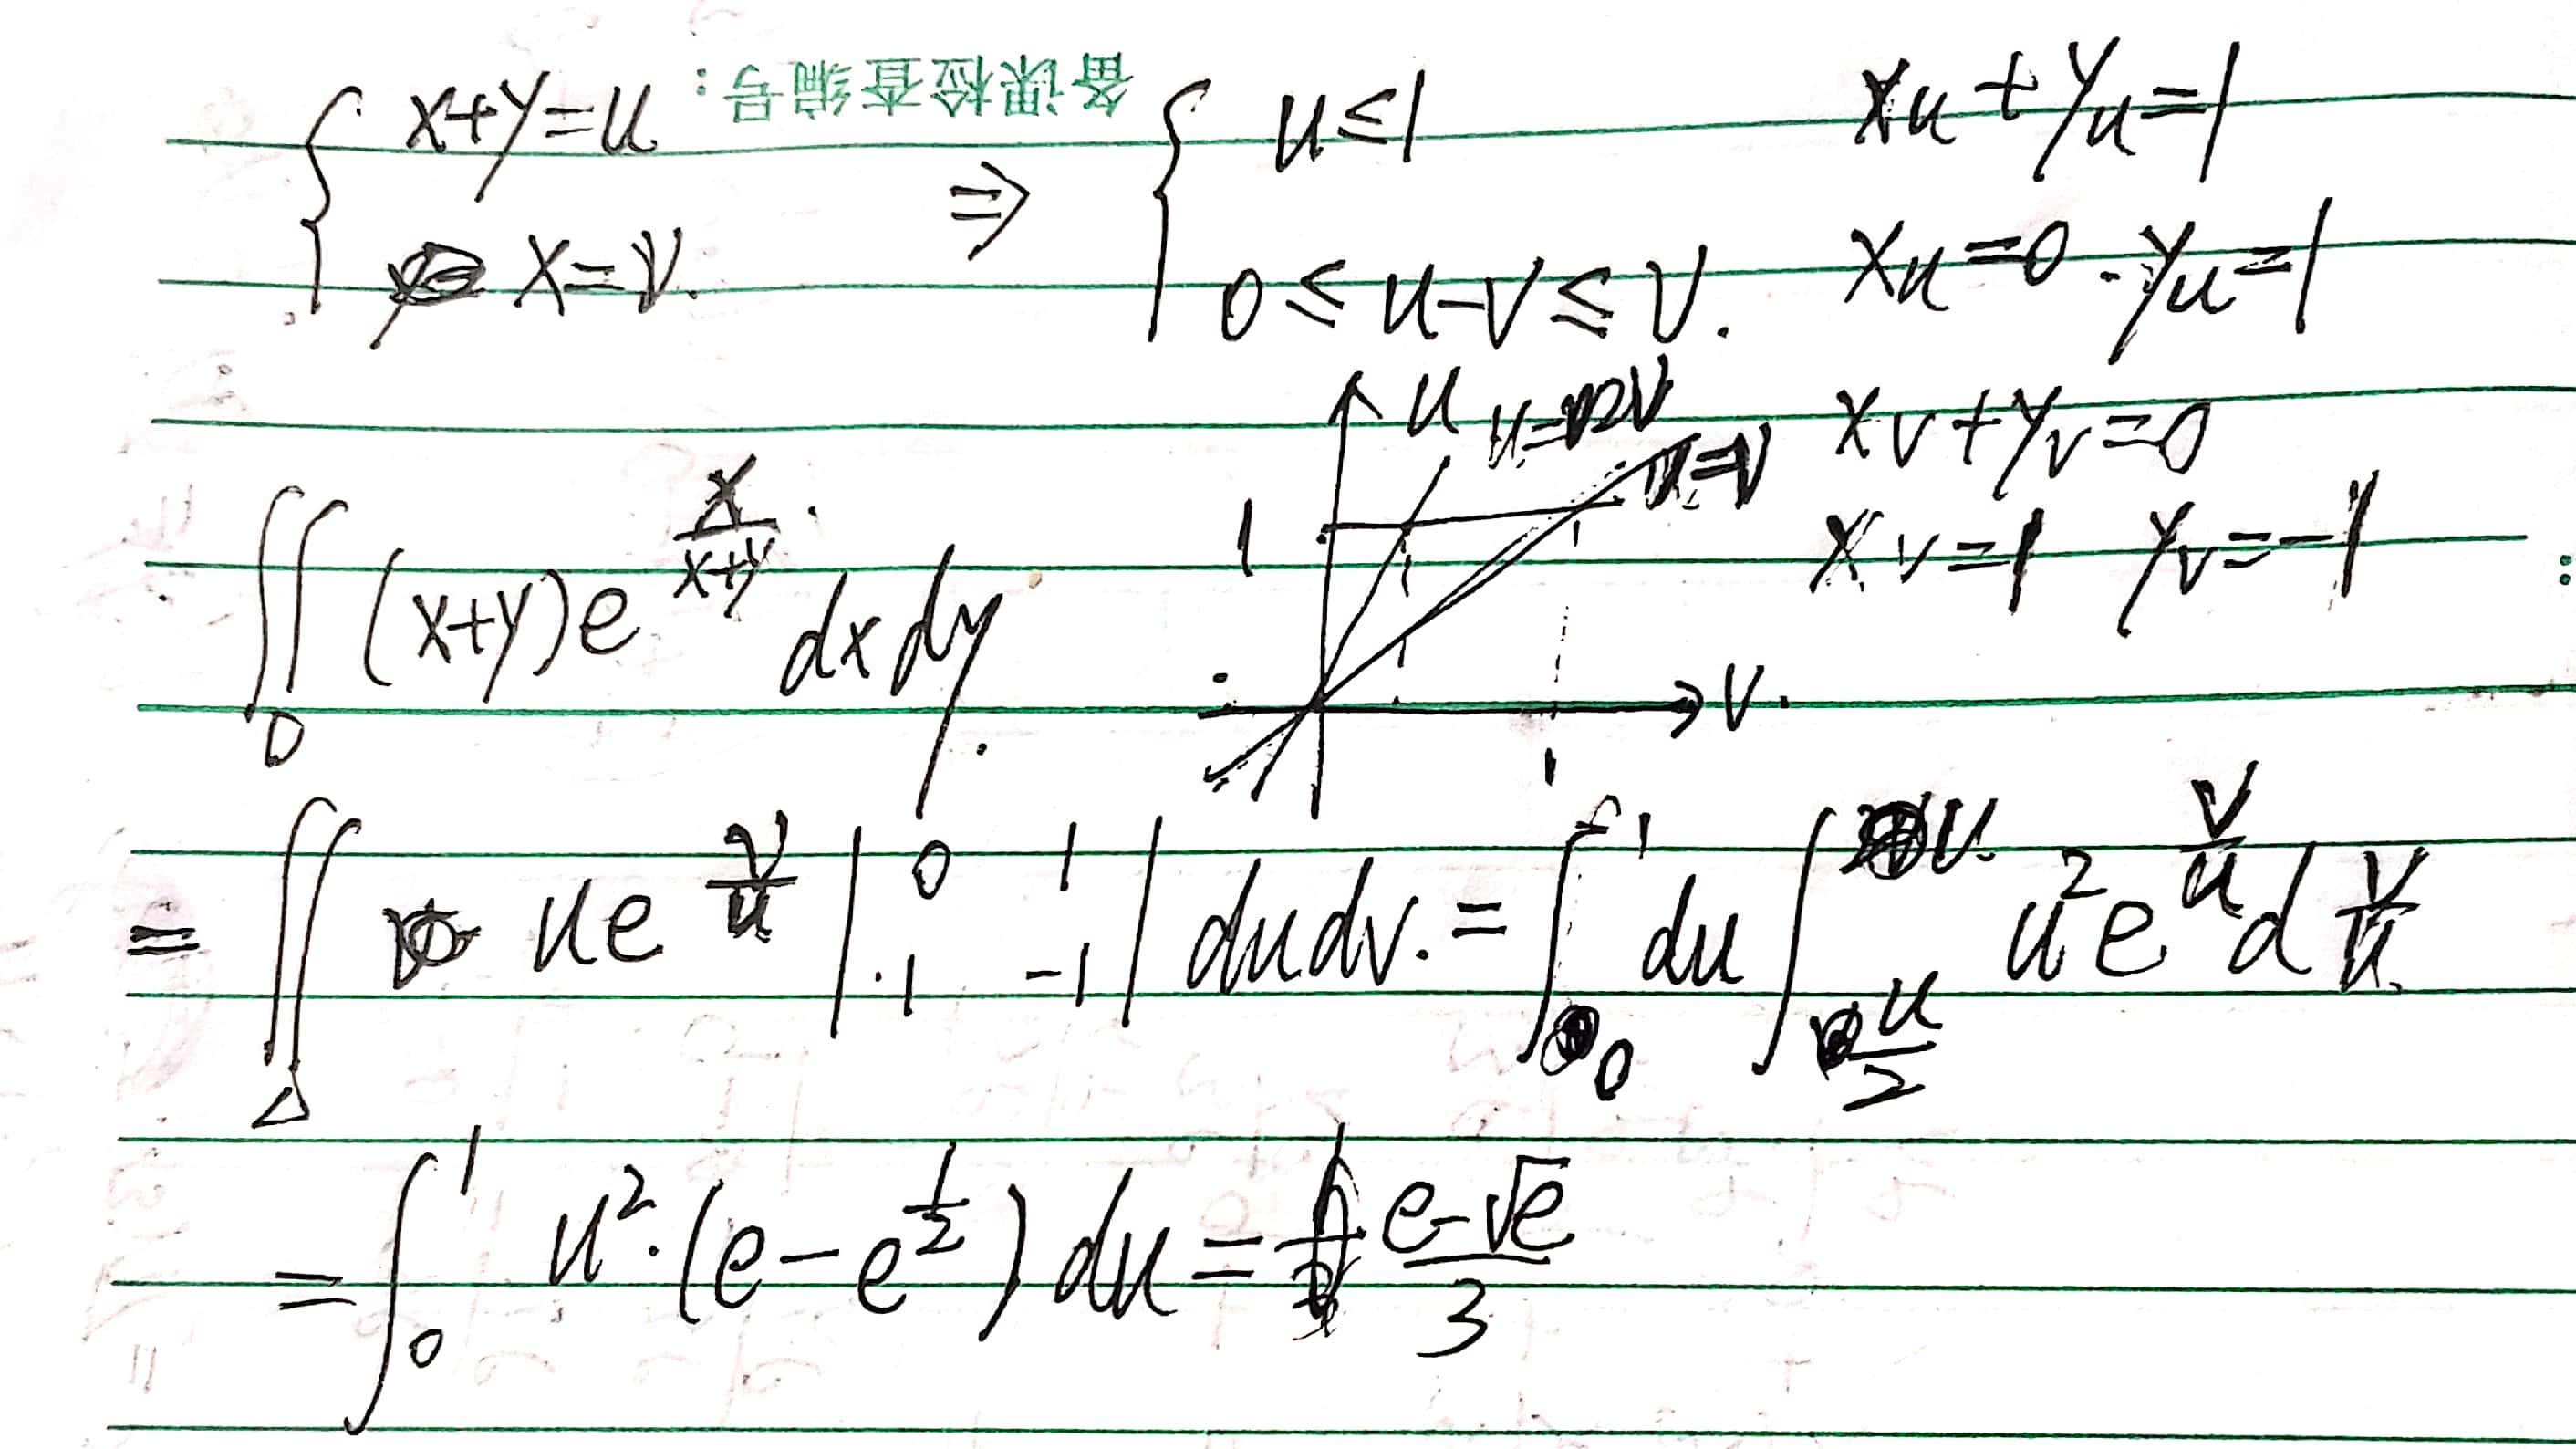 备课检查编号：
{ x+y=u
x=v. ⇒ { u≤1
0≤u-v≤v.
xu+yu=1
xu=0 . yu=1
xv+yv=0
xv=1 yv=-1
u
u=2v
u=v
1
v.
1
∬_D (x+y)e^{x/(x+y)} dxdy.
=∬_Δ ue^{v/u} |0 1
1 -1| dudv.=∫_0^1 du ∫_{u/2}^{u} u²e^{v/u} d v/u.
=∫_0^1 u²·(e-e^{1/2}) du = (e-√e)/3